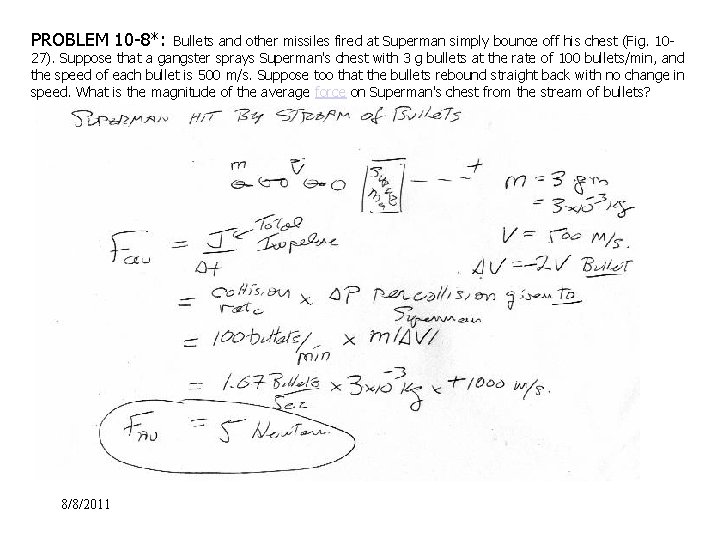 PROBLEM 10-8*: Bullets and other missiles fired at Superman simply bounce off his chest (Fig. 10-
27). Suppose that a gangster sprays Superman's chest with 3 g bullets at the rate of 100 bullets/min, and
the speed of each bullet is 500 m/s. Suppose too that the bullets rebound straight back with no change in
speed. What is the magnitude of the average force on Superman's chest from the stream of bullets?
SUPERMAN HIT BY STREAM of Bullets
m V
+
m = 3 gm
= 3x10⁻³ kg
V = 500 m/s.
ΔV = -2V Bullet
Fav = J Total Impulse
Δt
= collision rate x ΔP per collision given to
Superman
= 100 bullets/min x m|ΔV|
= 1.67 Bullets/Sec x 3x10⁻³ kg x +1000 m/s.
FAV = 5 Newton.
8/8/2011